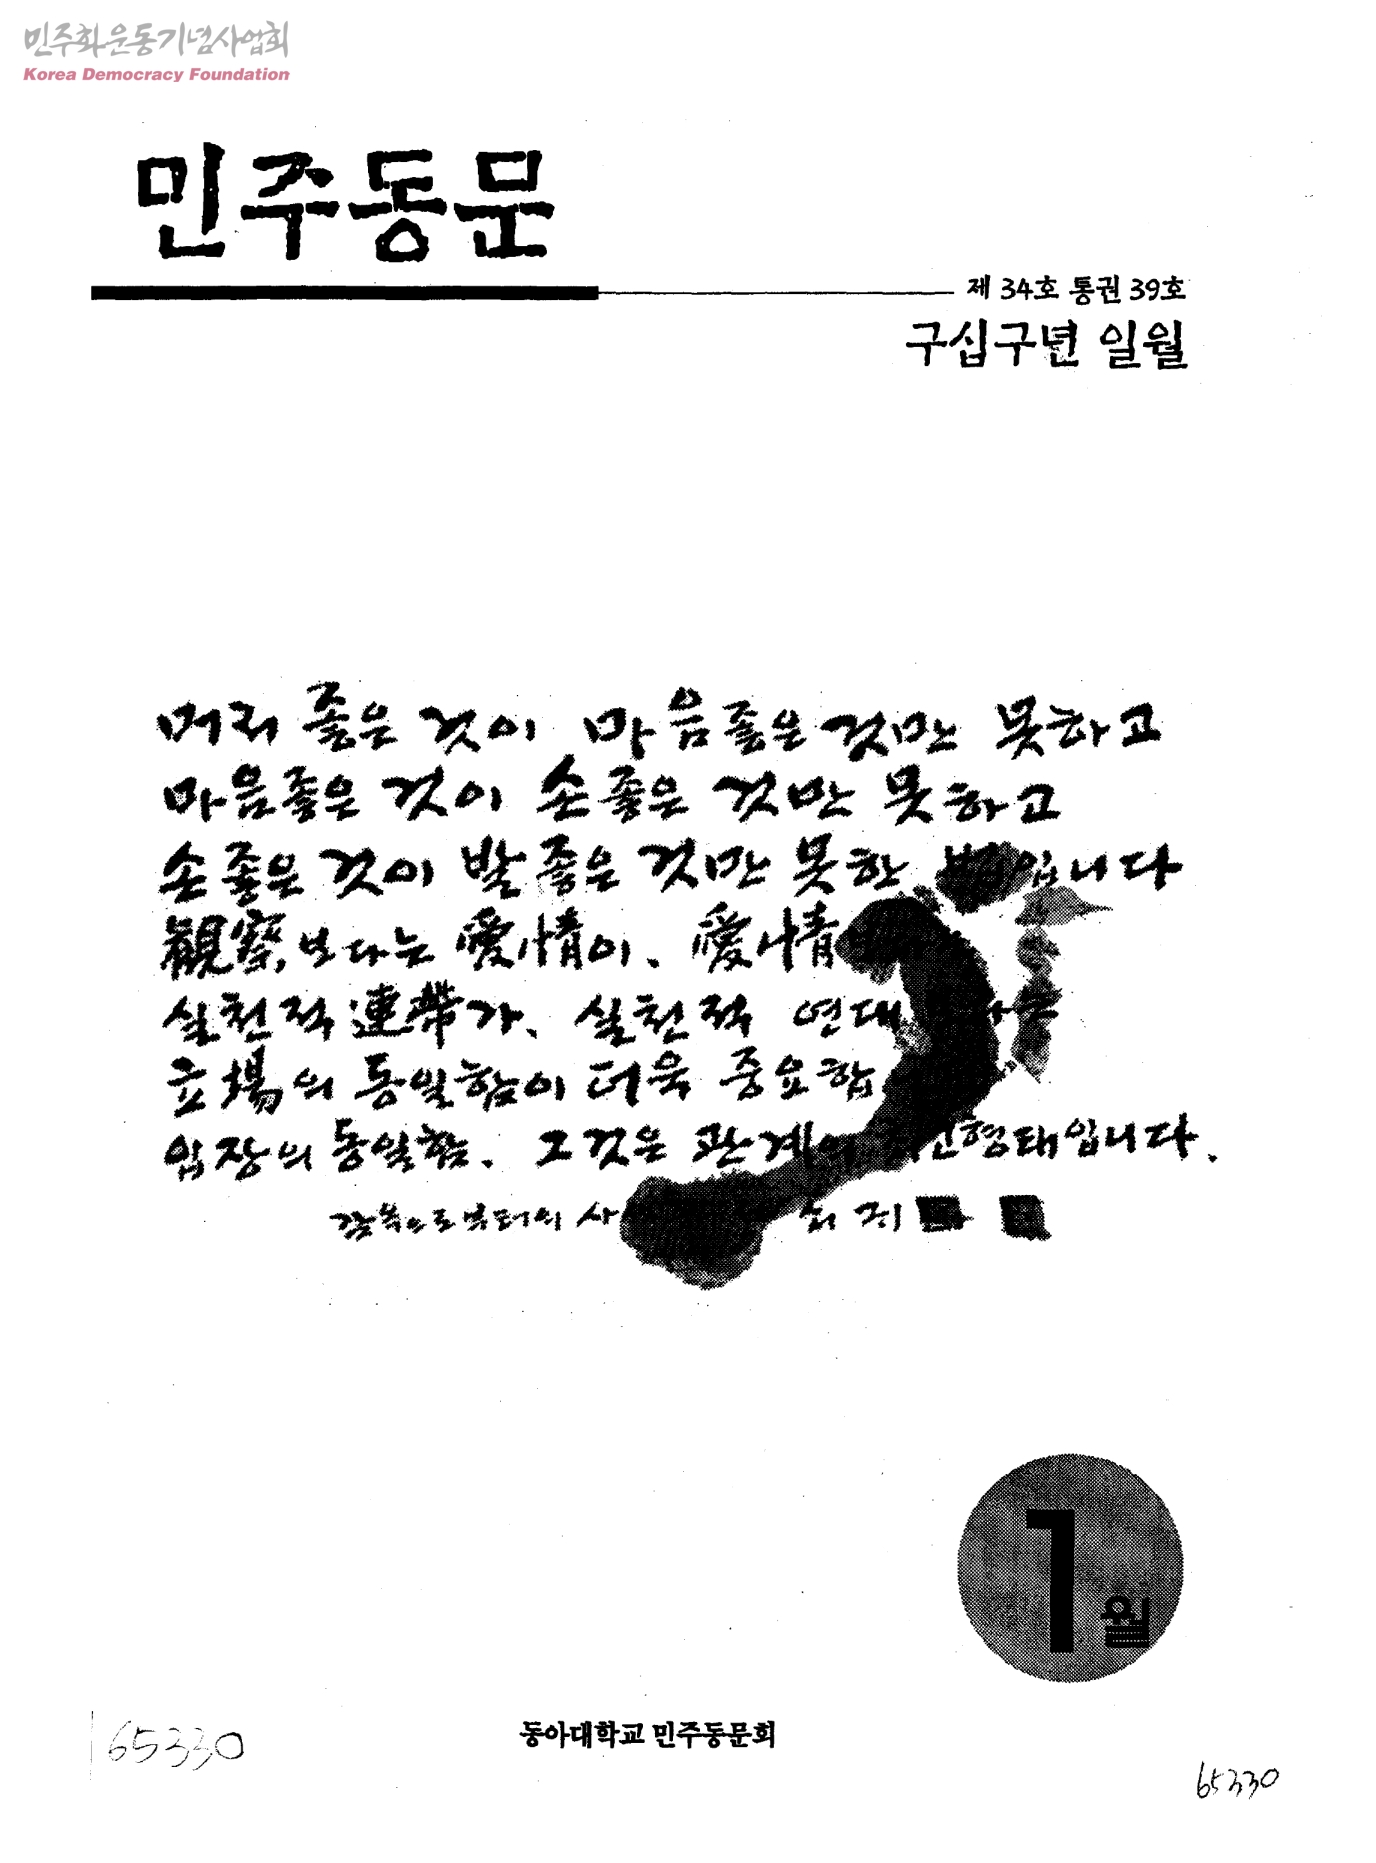 민주화운동기념사업회
Korea Democracy Foundation
민주동문
제 34호 통권 39호
구십구년 일월
머리 좋은 것이 마음좋은 것만 못하고
마음좋은 것이 손좋은 것만 못하고
손좋은 것이 발좋은 것만 못한 법입니다
觀察보다는 愛情이, 愛情
실천적 連帶가, 실천적 연대보다는
立場의 동일함이 더욱 중요합
입장의 동일함. 그것은 관계의 최고형태입니다.
감옥으로부터의 사
1월
동아대학교 민주동문회
65330
65330